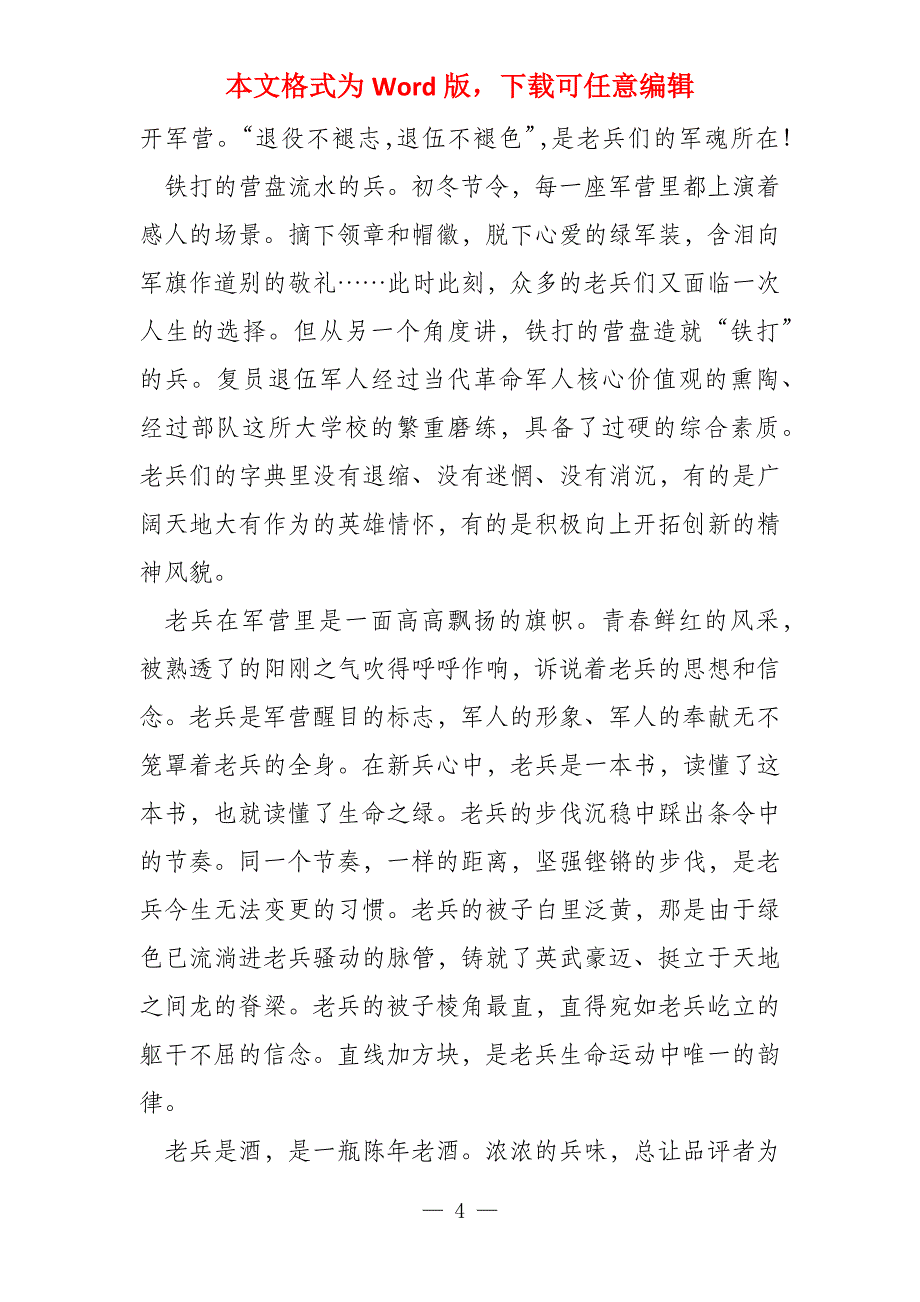 本文格式为 Word 版，下载可任意编辑
开军营。“退役不褪志,退伍不褪色”,是老兵们的军魂所在！
铁打的营盘流水的兵。初冬节令，每一座军营里都上演着
感人的场景。摘下领章和帽徽，脱下心爱的绿军装，含泪向
军旗作道别的敬礼……此时此刻，众多的老兵们又面临一次
人生的选择。但从另一个角度讲，铁打的营盘造就“铁打”
的兵。复员退伍军人经过当代革命军人核心价值观的熏陶、
经过部队这所大学校的繁重磨练，具备了过硬的综合素质。
老兵们的字典里没有退缩、没有迷惘、没有消沉，有的是广
阔天地大有作为的英雄情怀，有的是积极向上开拓创新的精
神风貌。
老兵在军营里是一面高高飘扬的旗帜。青春鲜红的风采，
被熟透了的阳刚之气吹得呼呼作响，诉说着老兵的思想和信
念。老兵是军营醒目的标志，军人的形象、军人的奉献无不
笼罩着老兵的全身。在新兵心中，老兵是一本书，读懂了这
本书，也就读懂了生命之绿。老兵的步伐沉稳中踩出条令中
的节奏。同一个节奏，一样的距离，坚强铿锵的步伐，是老
兵今生无法变更的习惯。老兵的被子白里泛黄，那是由于绿
色已流淌进老兵骚动的脉管，铸就了英武豪迈、挺立于天地
之间龙的脊梁。老兵的被子棱角最直，直得宛如老兵屹立的
躯干不屈的信念。直线加方块，是老兵生命运动中唯一的韵
律。
老兵是酒，是一瓶陈年老酒。浓浓的兵味，总让品评者为
— 4 —